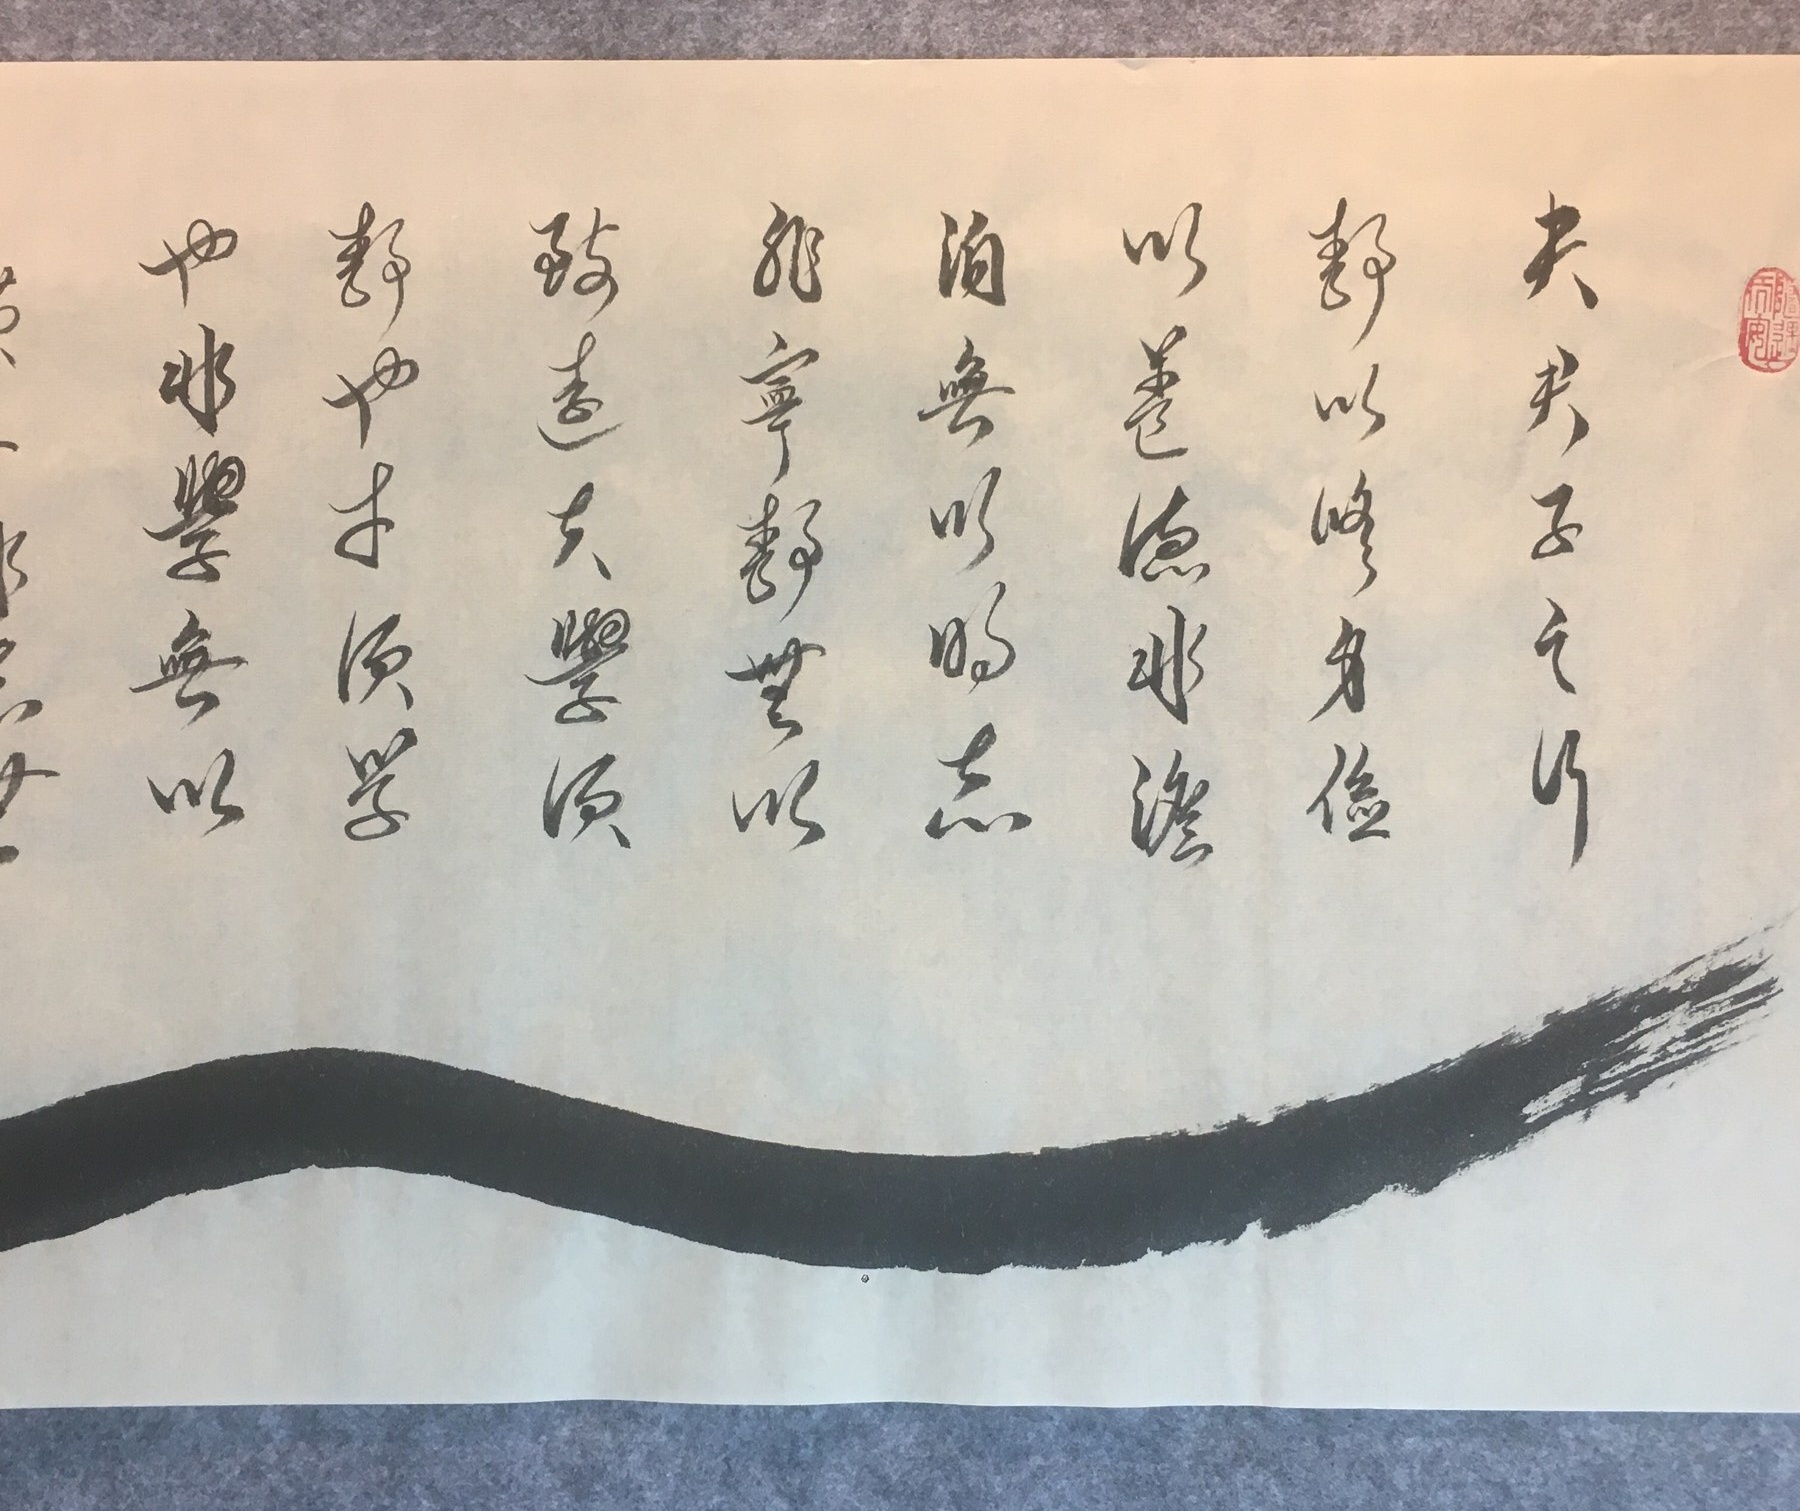 隨遇而安
夫夫子之行
靜以修身儉
以養德非澹
泊無以明志
非寧靜無以
致遠夫學須
靜也才須學
也非學無以